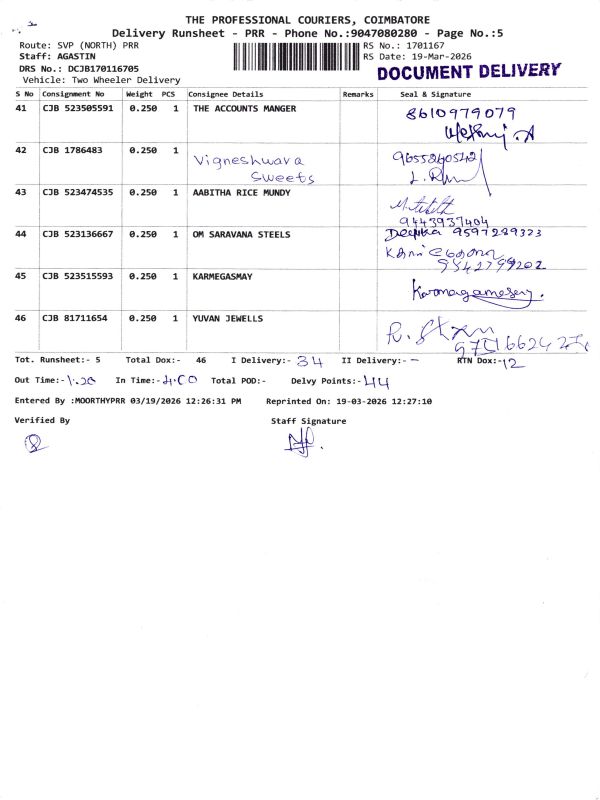 THE PROFESSIONAL COURIERS, COIMBATORE
Delivery Runsheet - PRR - Phone No.:9047080280 - Page No.:5
Route: SVP (NORTH) PRR
RS No.: 1701167
Staff: AGASTIN
RS Date: 19-Mar-2026
DRS No.: DCJB170116705
DOCUMENT DELIVERY
Vehicle: Two Wheeler Delivery
S No Consignment No Weight PCS Consignee Details Remarks Seal & Signature
41 CJB 523505591 0.250 1 THE ACCOUNTS MANGER 8610979079
42 CJB 1786483 0.250 1 Vigneshwara
Sweets
43 CJB 523474535 0.250 1 AABITHA RICE MUNDY
9443937404
44 CJB 523136667 0.250 1 OM SARAVANA STEELS Deepika 9597289323
9842799202
45 CJB 523515593 0.250 1 KARMEGASMAY
46 CJB 81711654 0.250 1 YUVAN JEWELLS
Tot. Runsheet:- 5 Total Dox:- 46 I Delivery:- 34 II Delivery:- - RTN Dox:-12
Out Time:-1.20 In Time:-4.00 Total POD:- Delvy Points:-44
Entered By :MOORTHYPRR 03/19/2026 12:26:31 PM Reprinted On: 19-03-2026 12:27:10
Verified By Staff Signature